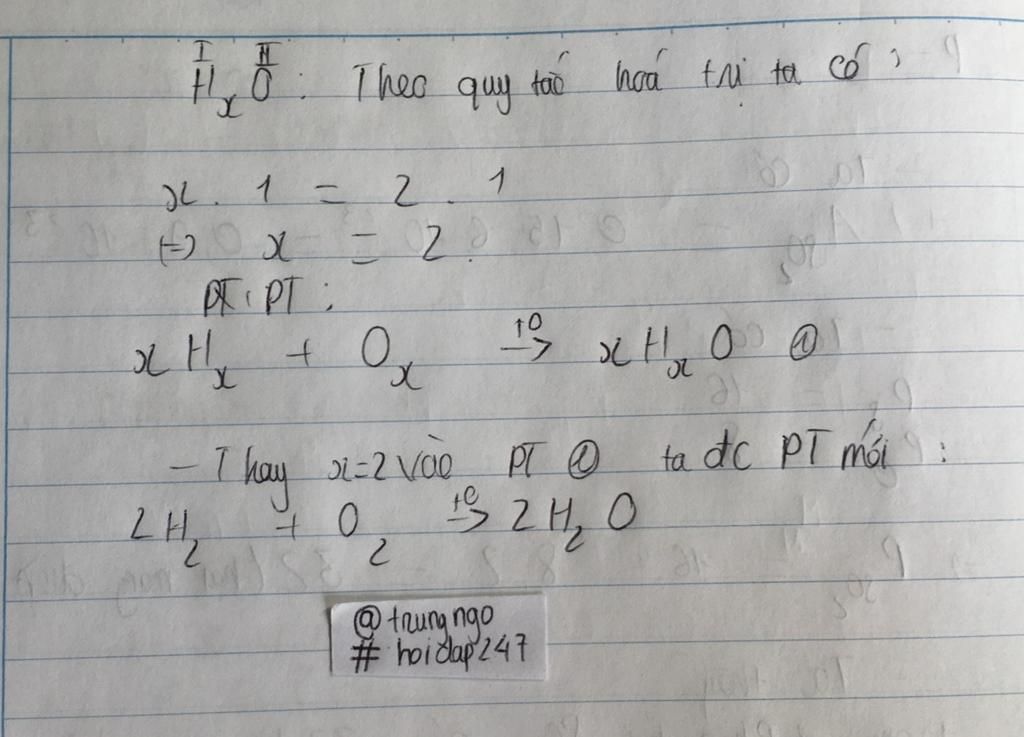 I II
HₓO : Theo quy tắc hoá trị ta có :
x . 1 = 2 . 1
(=) x = 2.
PTPT :
xHₓ + Oₓ →(t⁰) xHₓO @
- Thay x=2 vào PT @ ta đc PT mới :
2H₂ + O₂ →(t⁰) 2H₂O
@trungngo
# hoidap247